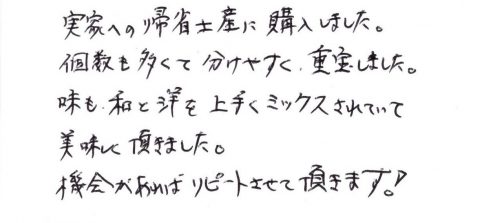 実家への帰省土産に購入しました。
個数も多くて分けやすく、重宝しました。
味も和と洋を上手くミックスされていて
美味しく頂きました。
機会があればリピートさせて頂きます!